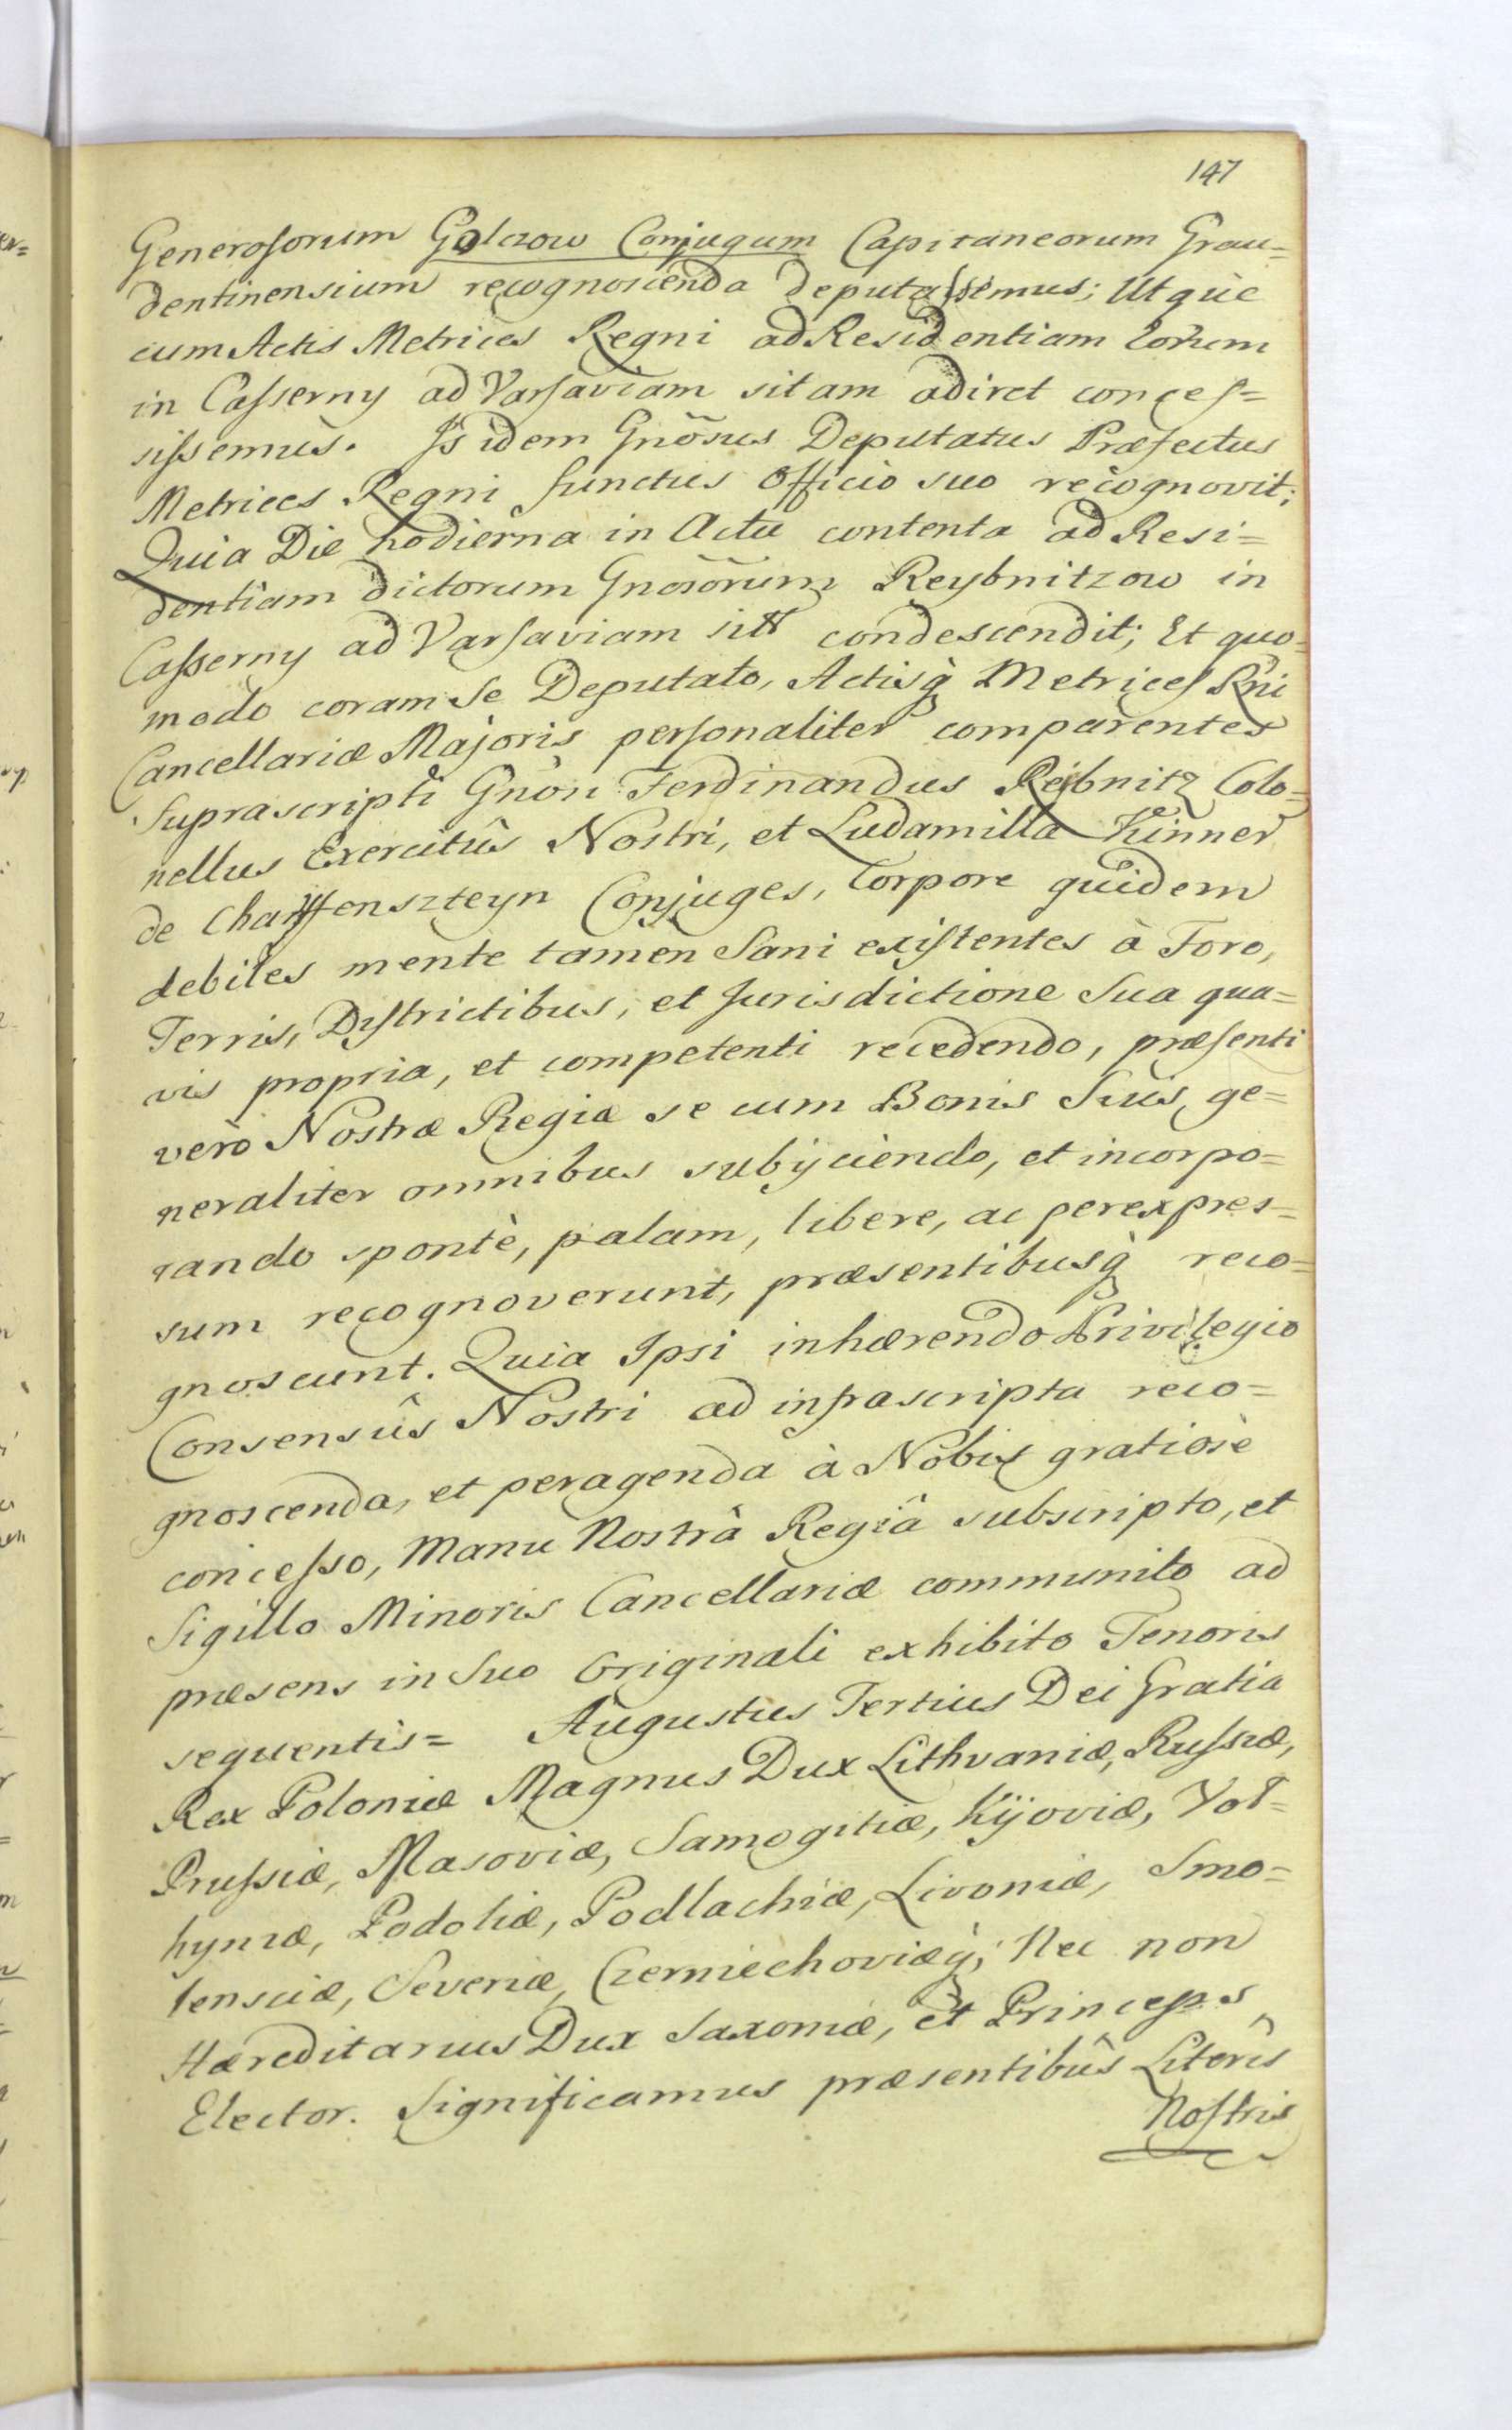 147
Generosorum Golczow Conjugum Capitaneorum Grau=
dentinensium recognoscenda deputassemus; Utquè
cum Actis Metrices Regni ad Residentiam Eorum
in Casserny ad Varsaviam sitam adiret conces=
sissemus. Is idem Gnõsus Deputatus Præfectus
Metrices Regni functus Officio suo recognovit;
Quia Die hodierna in Actu contenta ad Resi=
dentiam dictorum Gnosõrum Reybnitzow in
Casserny ad Varsaviam sitt condescendit; Et quo=
modo coram Se Deputato, Actisq̀ Metrices Rni
Cancellariæ Majoris personaliter comparentes
Suprascripti Gnôsi Ferdinandus Reibnitz Colo=
nellus Exercitûs Nostri, et Ludamilla Kinner
de Charffenszteyn Conjuges, Corpore quidem
debiles mente tamen Sani existentes à Foro,
Terris, Districtibus, et Jurisdictione Sua qua=
vis propria, et competenti recedendo, præsenti
verò Nostræ Regiæ se cum Bonis Suis ge=
neraliter omnibus subijciendo, et incorpo=
rando spontè, palam, libere, ac perexpres=
sum recognoverunt, præsentibusq̀ reco=
gnoscunt. Quia Ipsi inhærendo Privilegio
Consensûs Nostri ad infrascripta reco=
gnoscenda, et peragenda à Nobis gratiosè
concesso, Manu Nostrâ Regiâ subscripto, et
Sigillo Minoris Cancellariæ communito ad
præsens in Suo Originali exhibito Tenoris
sequentis= Augustus Tertius Dei Gratia
Rex Poloniæ Magnus Dux Lithvaniæ, Russiæ,
Prussiæ, Masoviæ, Samogitiæ, Kijoviæ, Vol=
hyniæ, Podoliæ, Podlachiæ, Livoniæ, Smo=
lensciæ, Severiæ, Czerniechoviæq̀; Nec non
Hæreditarius Dux Saxoniæ, et Princeps
Elector. Significamus præsentibûs Literîs
Nostris